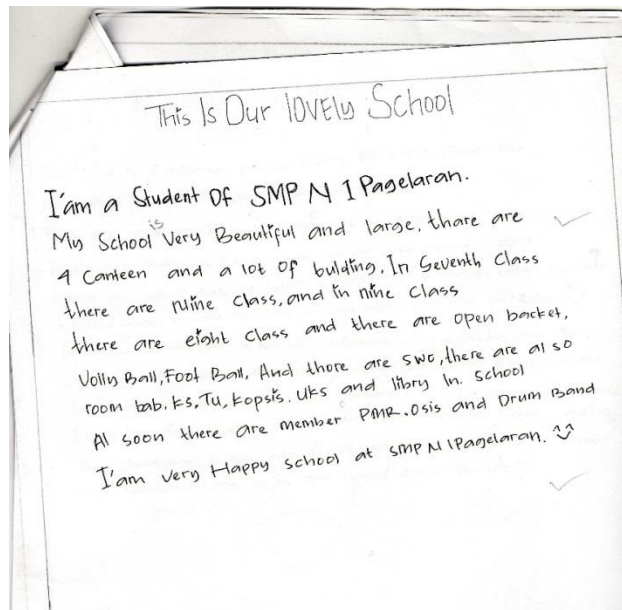 This Is Our lovely School
I'am a Student Of SMP N 1 Pagelaran.
My School is Very Beautiful and large, thare are
4 Canteen and a lot Of bulding. In Seventh Class
there are nine Class, and in nine Class
there are eight Class and there are open backet,
Volly Ball, Foot Ball, And thore are swc, there are al so
room bab. Ks, Tu, Kopsis. Uks and libry In. School
Al soon there are member PMR. Osis and Drum Band
I'am very Happy school at SMP N 1 Pagelaran.